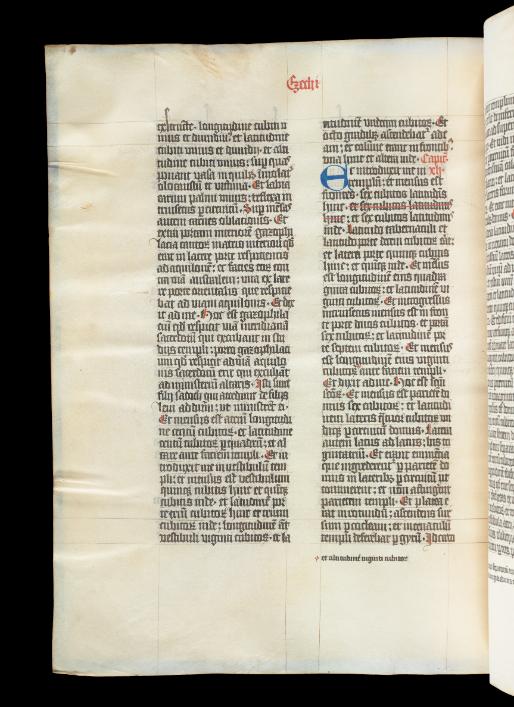 Ezechi
extructe. longitudine cubiti u
nius et dimidii. et latitudine
cubiti unius et dimidii. et alti
tudine cubiti unius. sup quas
ponant vasa in quib; īmolat᷑
olocaustū et victima. Et labia
earum palmi unius. reflexa in
trinsecus p circuitū. Sup mēsas
autem carnes oblationis. Et
extra portam interiorē gazophi
lacia cantorū in atrio interiori qđ
erat in latere porte respicientis
ad aquilonē. et facies eorū con
tra viā australem. una ex late
re porte orientalis que respicie
bat ad viam aquilonis. Et dix
it ad me. Hoc est gazophila
ciū qđ respicit viā meridianā
sacerdotū qui excubant in
templi. porro gazophilaci
um qđ respicit ad viā aquilo
nis sacerdotū erit qui excubāt
ad ministeriū altaris. Isti sunt
filii sadoch qui accedunt de filiis
levi ad dn̄m. ut ministrent ei.
Et mensus est atriū longitudi
ne centū cubitoꝝ. et latitudine
centū cubitoꝝ p quadrū. et al
tare ante faciem templi. Et in
troduxit me in vestibulū tem
pli. et mensus est vestibulum
quinqꝫ cubitis hinc et quinqꝫ
cubitis inde. et latitudinē por
te triū cubitoꝝ hinc et trium
cubitoꝝ inde. longitudinē aūt
vestibuli viginti cubitoꝝ. et la
titudinē undecim cubitoꝝ. Et
octo gradibꝫ ascendebat᷑ ad e
am. et colūne erant in frontibꝫ
una hinc et altera inde. Capłm.
Et introduxit me in xli.
templū. et mensus est
frontes. sex cubitos latitudīs
hinc. et sex cubitos latitudinis
hinc. et sex cubitos latitudinis
inde. Latitudo tabernaculi et
latitudo porte decem cubitoꝝ erat.
et latera porte quinqꝫ cubitis
hinc. et quinqꝫ inde. Et mēsus
est longitudinē eius quadra
ginta cubitoꝝ. et latitudinē vi
ginti cubitoꝝ. Et introgressus
intrinsecus mensus est in fron
te porte duos cubitos. et portā
sex cubitoꝝ. et latitudinē por
te septem cubitoꝝ. Et mensus
est longitudinē eius viginti
cubitoꝝ ante faciem templi.
Et dixit ad me. Hoc est scm̄
scōꝝ. Et mensus est parietē do
mus sex cubitoꝝ. et latitudi
nem lateris quatuor cubitoꝝ un
diqꝫ p circuitū domus. Latera
autem latus ad latus. bis tri
ginta tria. Et erant eminētia
que ingrederent᷑ p parietē do
mus in lateribꝫ p circuitū ut
continerent. et non attingent
parietem templi. Et platea e
rat in rotundū. ascendens sur
sum p cocleam. et in cenaculū
templi deferebat p gyrū. Idcirco
+ et altitudinē viginti cubitoꝝ